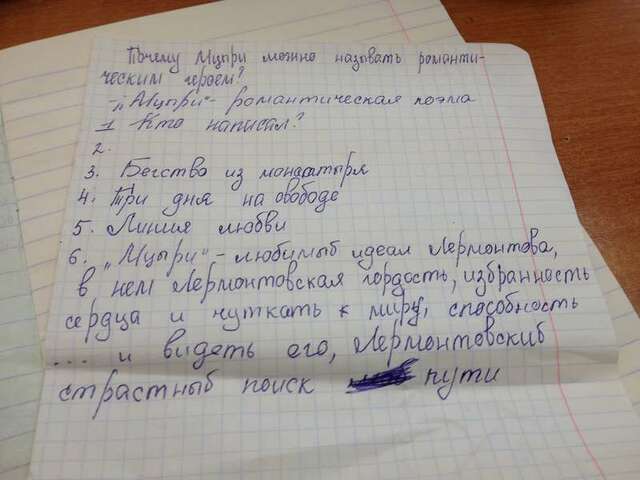 Почему Мцыри можно назвать романти-
ческим героем?
"Мцыри" - романтическая поэма
1 Кто написал?
2.
3. Бегство из монастыря
4. Три дня на свободе
5. Линия любви
6. "Мцыри" - любимый идеал Лермонтова,
в нем Лермонтовская гордость, избранность
сердца и чуткать к миру, способность
... и видеть его, Лермонтовский
страстный поиск пути